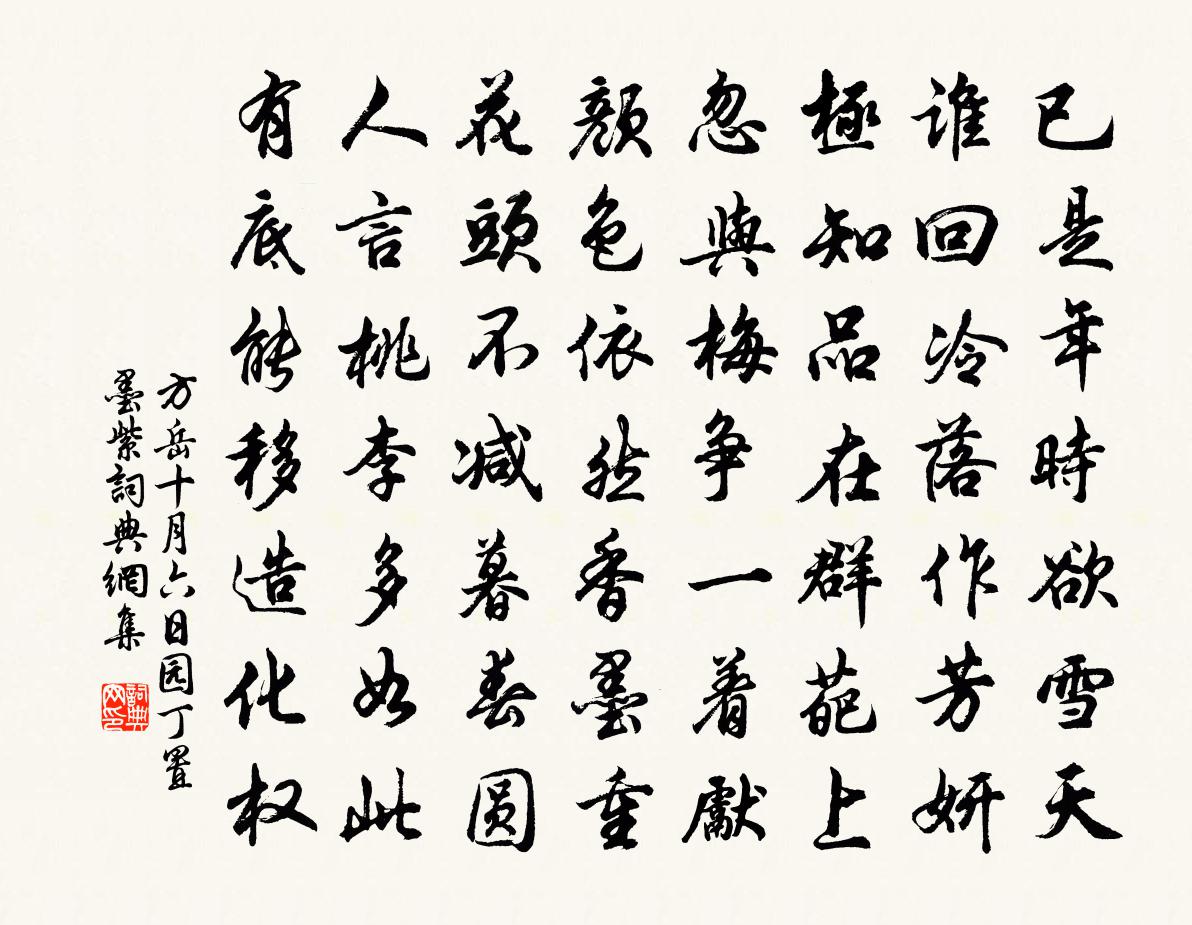 已是年時欲雪天
谁回冷落作芳妍
極知品在群葩上
忽與梅争一着獻
顔色依然香墨重
花頭不减暮春圆
人言桃李多如此
有底能移造化权
方岳十月六日园丁置
墨紫詞典網集
詞典网印